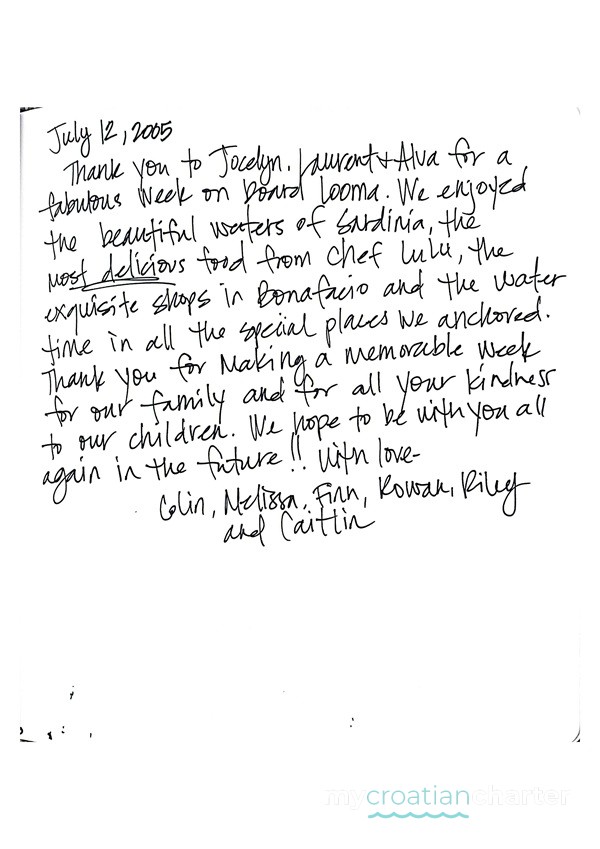 July 12, 2005
Thank you to Jocelyn, Laurent + Alva for a
fabulous week on board Looma. We enjoyed
the beautiful waters of Sardinia, the
most delicious food from Chef Lulu, the
exquisite shops in Bonafacio and the water
time in all the special places we anchored.
Thank you for making a memorable week
for our family and for all your kindness
to our children. We hope to be with you all
again in the future!! With love-
Colin, Melissa, Finn, Rowan, Riley
and Caitlin
mycroatiancharter